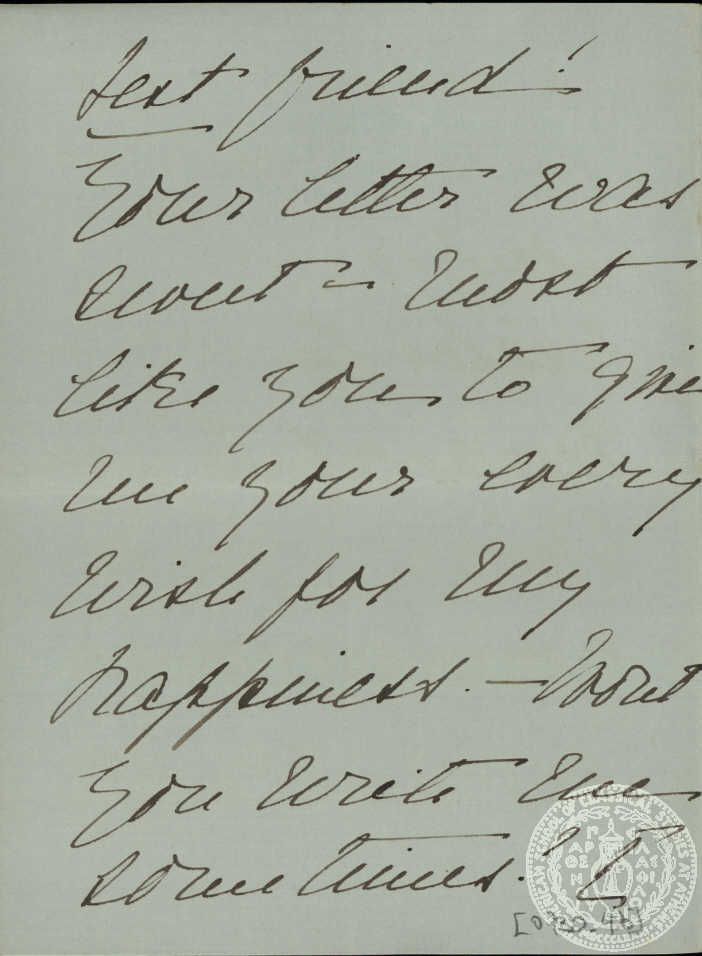 friend!
Your letter was
sweet - most
like you to give
me your every
wish for my
happiness. — Wont
you write me
sometimes.
AMERICAN SCHOOL OF CLASSICAL STUDIES AT ATHENS